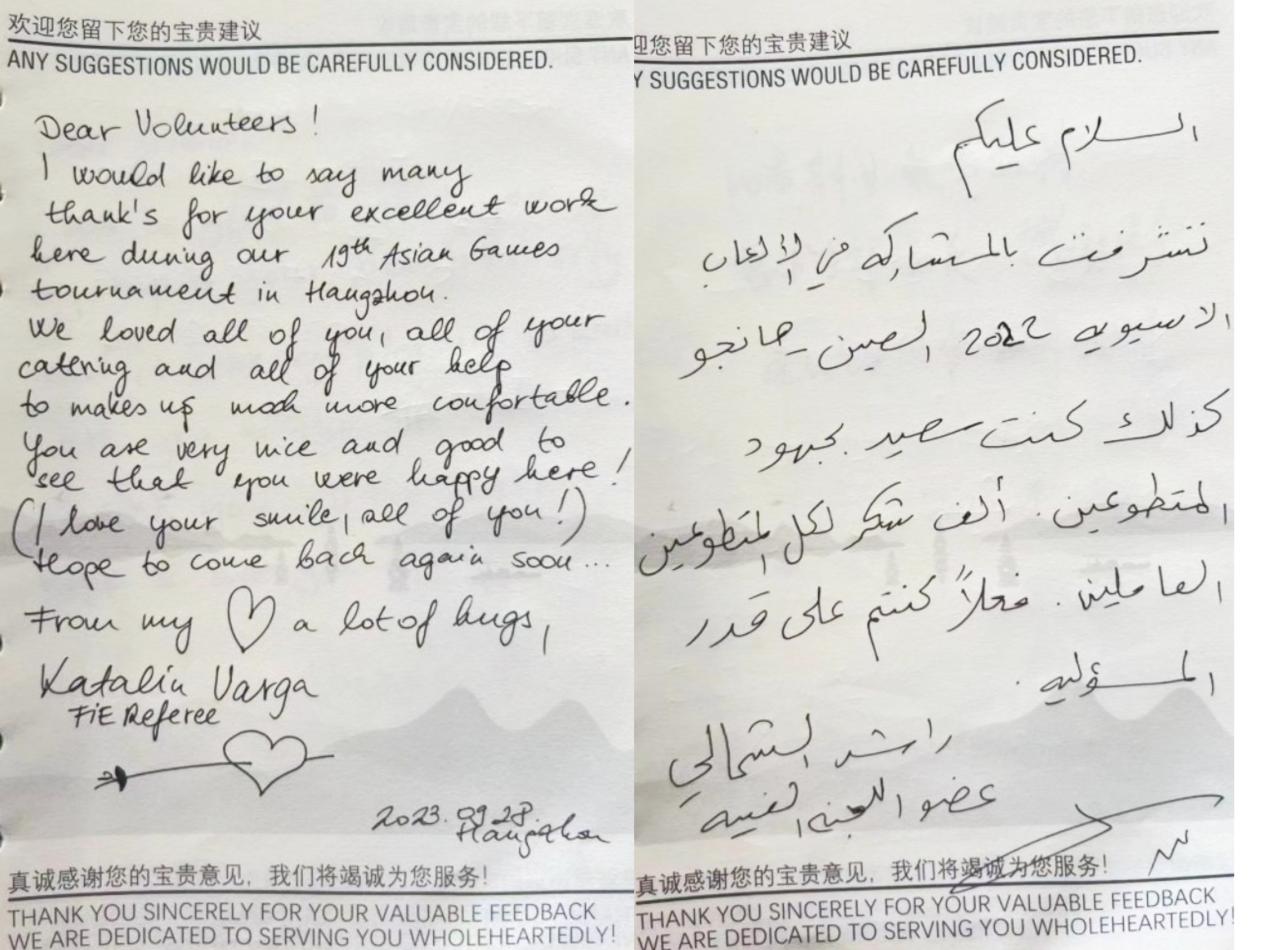 欢迎您留下您的宝贵建议
ANY SUGGESTIONS WOULD BE CAREFULLY CONSIDERED.
Dear Volunteers!
I would like to say many
thank's for your excellent work
here during our 19th Asian Games
tournament in Hangzhou.
We loved all of you, all of your
catering and all of your help
to makes us much more comfortable.
You are very nice and good to
see that you were happy here!
(I love your smile, all of you!)
Hope to come back again soon...
From my ♡ a lot of hugs,
Katalin Varga
FIE Referee
2023.09.28.
Hangzhou
真诚感谢您的宝贵意见，我们将竭诚为您服务！
THANK YOU SINCERELY FOR YOUR VALUABLE FEEDBACK
WE ARE DEDICATED TO SERVING YOU WHOLEHEARTEDLY!
迎您留下您的宝贵建议
Y SUGGESTIONS WOULD BE CAREFULLY CONSIDERED.
السلام عليكم
تشرفت بالمشاركه في الألعاب
الاسيويه 2022 الصين - هانجو
كذلك كنت سعيد بجهود
المتطوعين. ألف شكر لكل المتطوعين
العاملين. فعلاً كنتم على قدر
المسؤليه.
راشد الشمالي
عضو اللجنه الفنيه
真诚感谢您的宝贵意见，我们将竭诚为您服务！
THANK YOU SINCERELY FOR YOUR VALUABLE FEEDBACK
WE ARE DEDICATED TO SERVING YOU WHOLEHEARTEDLY!